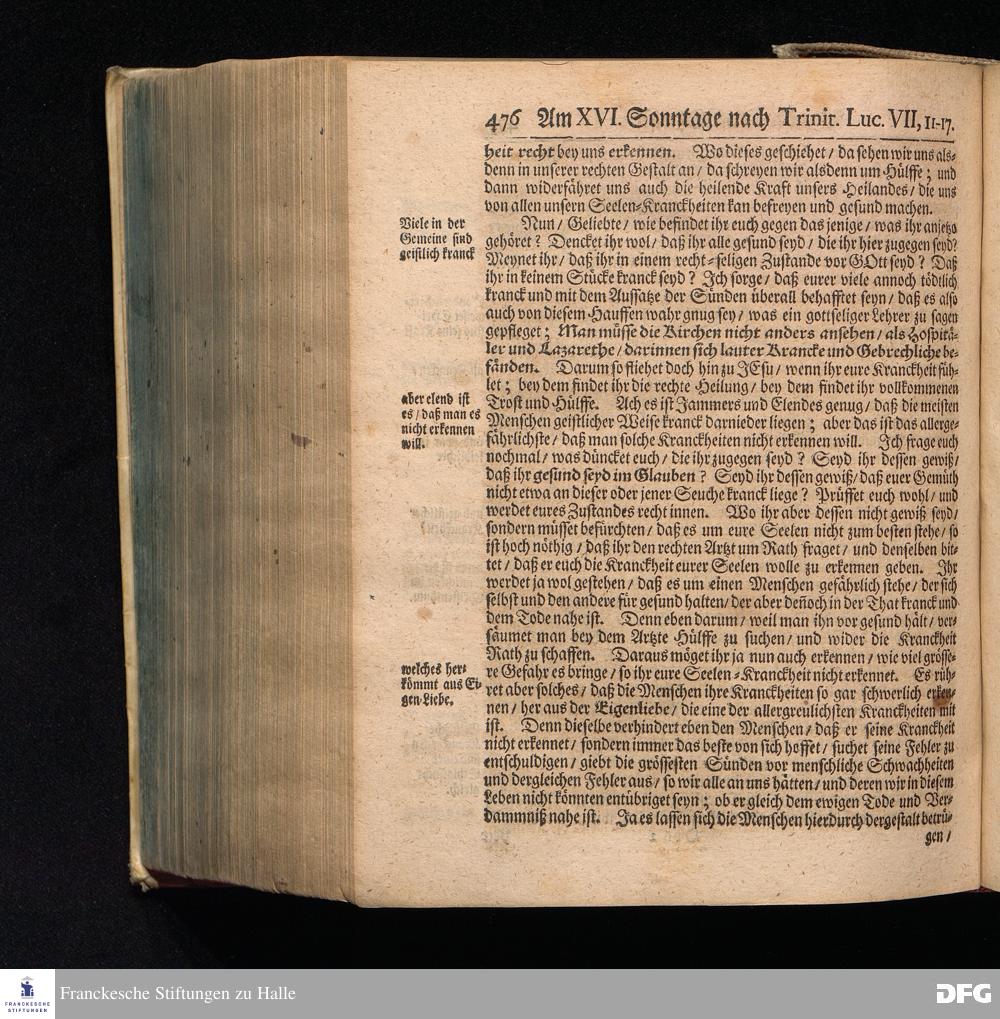 476 Am XVI. Sonntage nach Trinit. Luc. VII, 11-17.
heit recht bey uns erkennen. Wo dieses geschiehet / da sehen wir uns als-
denn in unserer rechten Gestalt an / da schreyen wir alsdenn um Hülffe ; und
dann widerfähret uns auch die heilende Kraft unsers Heilandes / die uns
von allen unsern Seelen-Kranckheiten kan befreyen und gesund machen.
Viele in der
Gemeine sind
geistlich kranck
Nun / Geliebte / wie befindet ihr euch gegen das jenige / was ihr anjetzo
gehöret ? Dencket ihr wol / daß ihr alle gesund seyd / die ihr hier zugegen seyd?
Meynet ihr / daß ihr in einem recht-seligen Zustande vor GOtt seyd ? Daß
ihr in keinem Stücke kranck seyd ? Ich sorge / daß eurer viele annoch tödtlich
kranck und mit dem Aussatze der Sünden überall behafftet seyn / daß es also
auch von diesem Hauffen wahr gnug sey / was ein gottseliger Lehrer zu sagen
gepfleget ; Man müsse die Kirchen nicht anders ansehen / als Hospitä-
ler und Lazarethe / darinnen sich lauter Krancke und Gebrechliche be-
fänden. Darum so fliehet doch hin zu JEsu / wenn ihr eure Kranckheit füh-
let ; bey dem findet ihr die rechte Heilung / bey dem findet ihr vollkommenen
aber elend ist
es / daß man es
nicht erkennen
will.
Trost und Hülffe. Ach es ist Jammers und Elendes genug / daß die meisten
Menschen geistlicher Weise kranck darnieder liegen ; aber das ist das allerge-
fährlichste / daß man solche Kranckheiten nicht erkennen will. Ich frage euch
nochmal / was düncket euch / die ihr zugegen seyd ? Seyd ihr dessen gewiß /
daß ihr gesund seyd im Glauben ? Seyd ihr dessen gewiß / daß euer Gemüth
nicht etwa an dieser oder jener Seuche kranck liege ? Prüffet euch wohl / und
werdet eures Zustandes recht innen. Wo ihr aber dessen nicht gewiß seyd /
sondern müsset befürchten / daß es um eure Seelen nicht zum besten stehe / so
ist hoch nöthig / daß ihr den rechten Artzt um Rath fraget / und denselben bit-
tet / daß er euch die Kranckheit eurer Seelen wolle zu erkennen geben. Ihr
werdet ja wol gestehen / daß es um einen Menschen gefährlich stehe / der sich
selbst und den andere für gesund halten / der aber deñoch in der That kranck und
dem Tode nahe ist. Denn eben darum / weil man ihn vor gesund hält / ver-
säumet man bey dem Artzte Hülffe zu suchen / und wider die Kranckheit
Rath zu schaffen. Daraus möget ihr ja nun auch erkennen / wie viel grösse-
welches her-
kömmt aus Ei-
gen-Liebe.
re Gefahr es bringe / so ihr eure Seelen-Kranckheit nicht erkennet. Es rüh-
ret aber solches / daß die Menschen ihre Kranckheiten so gar schwerlich erken-
nen / her aus der Eigenliebe / die eine der allergreulichsten Kranckheiten mit
ist. Denn dieselbe verhindert eben den Menschen / daß er seine Kranckheit
nicht erkennet / sondern immer das beste von sich hoffet / suchet seine Fehler zu
entschuldigen / giebt die grössesten Sünden vor menschliche Schwachheiten
und dergleichen Fehler aus / so wir alle an uns hätten / und deren wir in diesem
Leben nicht könnten entübriget seyn ; ob er gleich dem ewigen Tode und Ver-
dammniß nahe ist. Ja es lassen sich die Menschen hierdurch dergestalt betrü-
gen /
FRANCKESCHE
STIFTUNGEN
Franckesche Stiftungen zu Halle
DFG